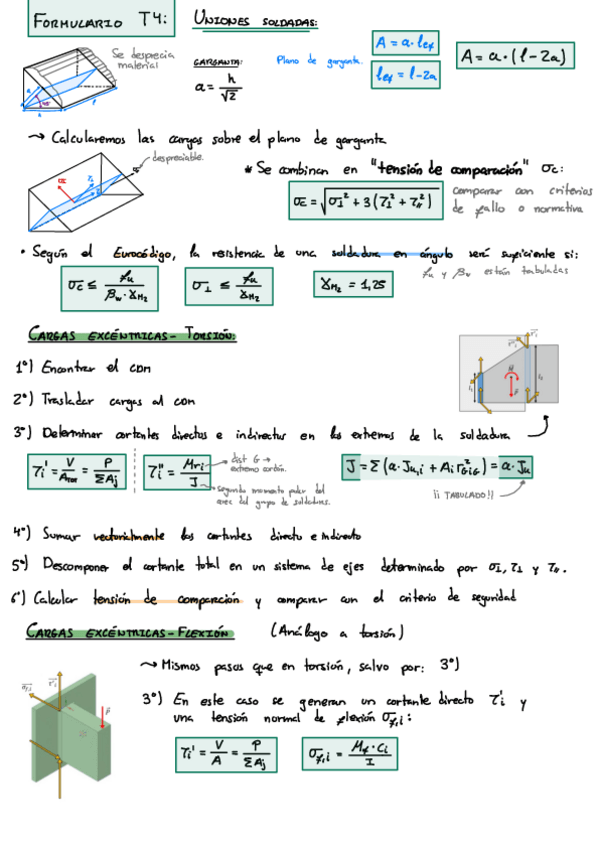 FORMULARIO T4: UNIONES SOLDADAS:
Se desprecia
material
GARGANTA:
a = h/√2
Plano de garganta.
A = a · lef
lef = l-2a
A = a · (l-2a)
→ Calcularemos las cargas sobre el plano de garganta
despreciable.
* Se combinan en "tensión de comparación" σc:
σc = √(σ⊥² + 3(τ⊥² + τ∥²))
comparar con criterios
de fallo o normativa
• Según el Eurocódigo, la resistencia de una soldadura en ángulo será suficiente si:
fu y βw están tabuladas
σc ≤ fu/(βw · γM2)
σ⊥ ≤ fu/γM2
γM2 = 1,25
CARGAS EXCÉNTRICAS - TORSIÓN:
1º) Encontrar el CDM
2º) Trasladar cargas al CDM
3º) Determinar cortantes directos e indirectos en los extremos de la soldadura
τi' = V/ATOT = P/ΣAj
τi'' = M·ri/J
dist G →
extremo cordón.
segundo momento polar del
área del grupo de soldaduras.
J = Σ(a · Ju,i + Ai r²GiG) = a · Ju
¡¡ TABULADO!!
4º) Sumar vectorialmente los cortantes directo e indirecto
5º) Descomponer el cortante total en un sistema de ejes determinado por σ⊥, τ⊥ y τ∥.
6º) Calcular tensión de comparación y comparar con el criterio de seguridad
CARGAS EXCÉNTRICAS - FLEXIÓN (Análogo a torsión)
→ Mismos pasos que en torsión, salvo por: 3º)
3º) En este caso se generan un cortante directo τi' y
una tensión normal de flexión σf,i:
τi' = V/A = P/ΣAj
σf,i = Mf · ci/I